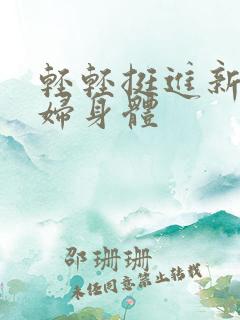 輕輕挺進新
婦身體
邵珊珊
未任同意禁止轉載